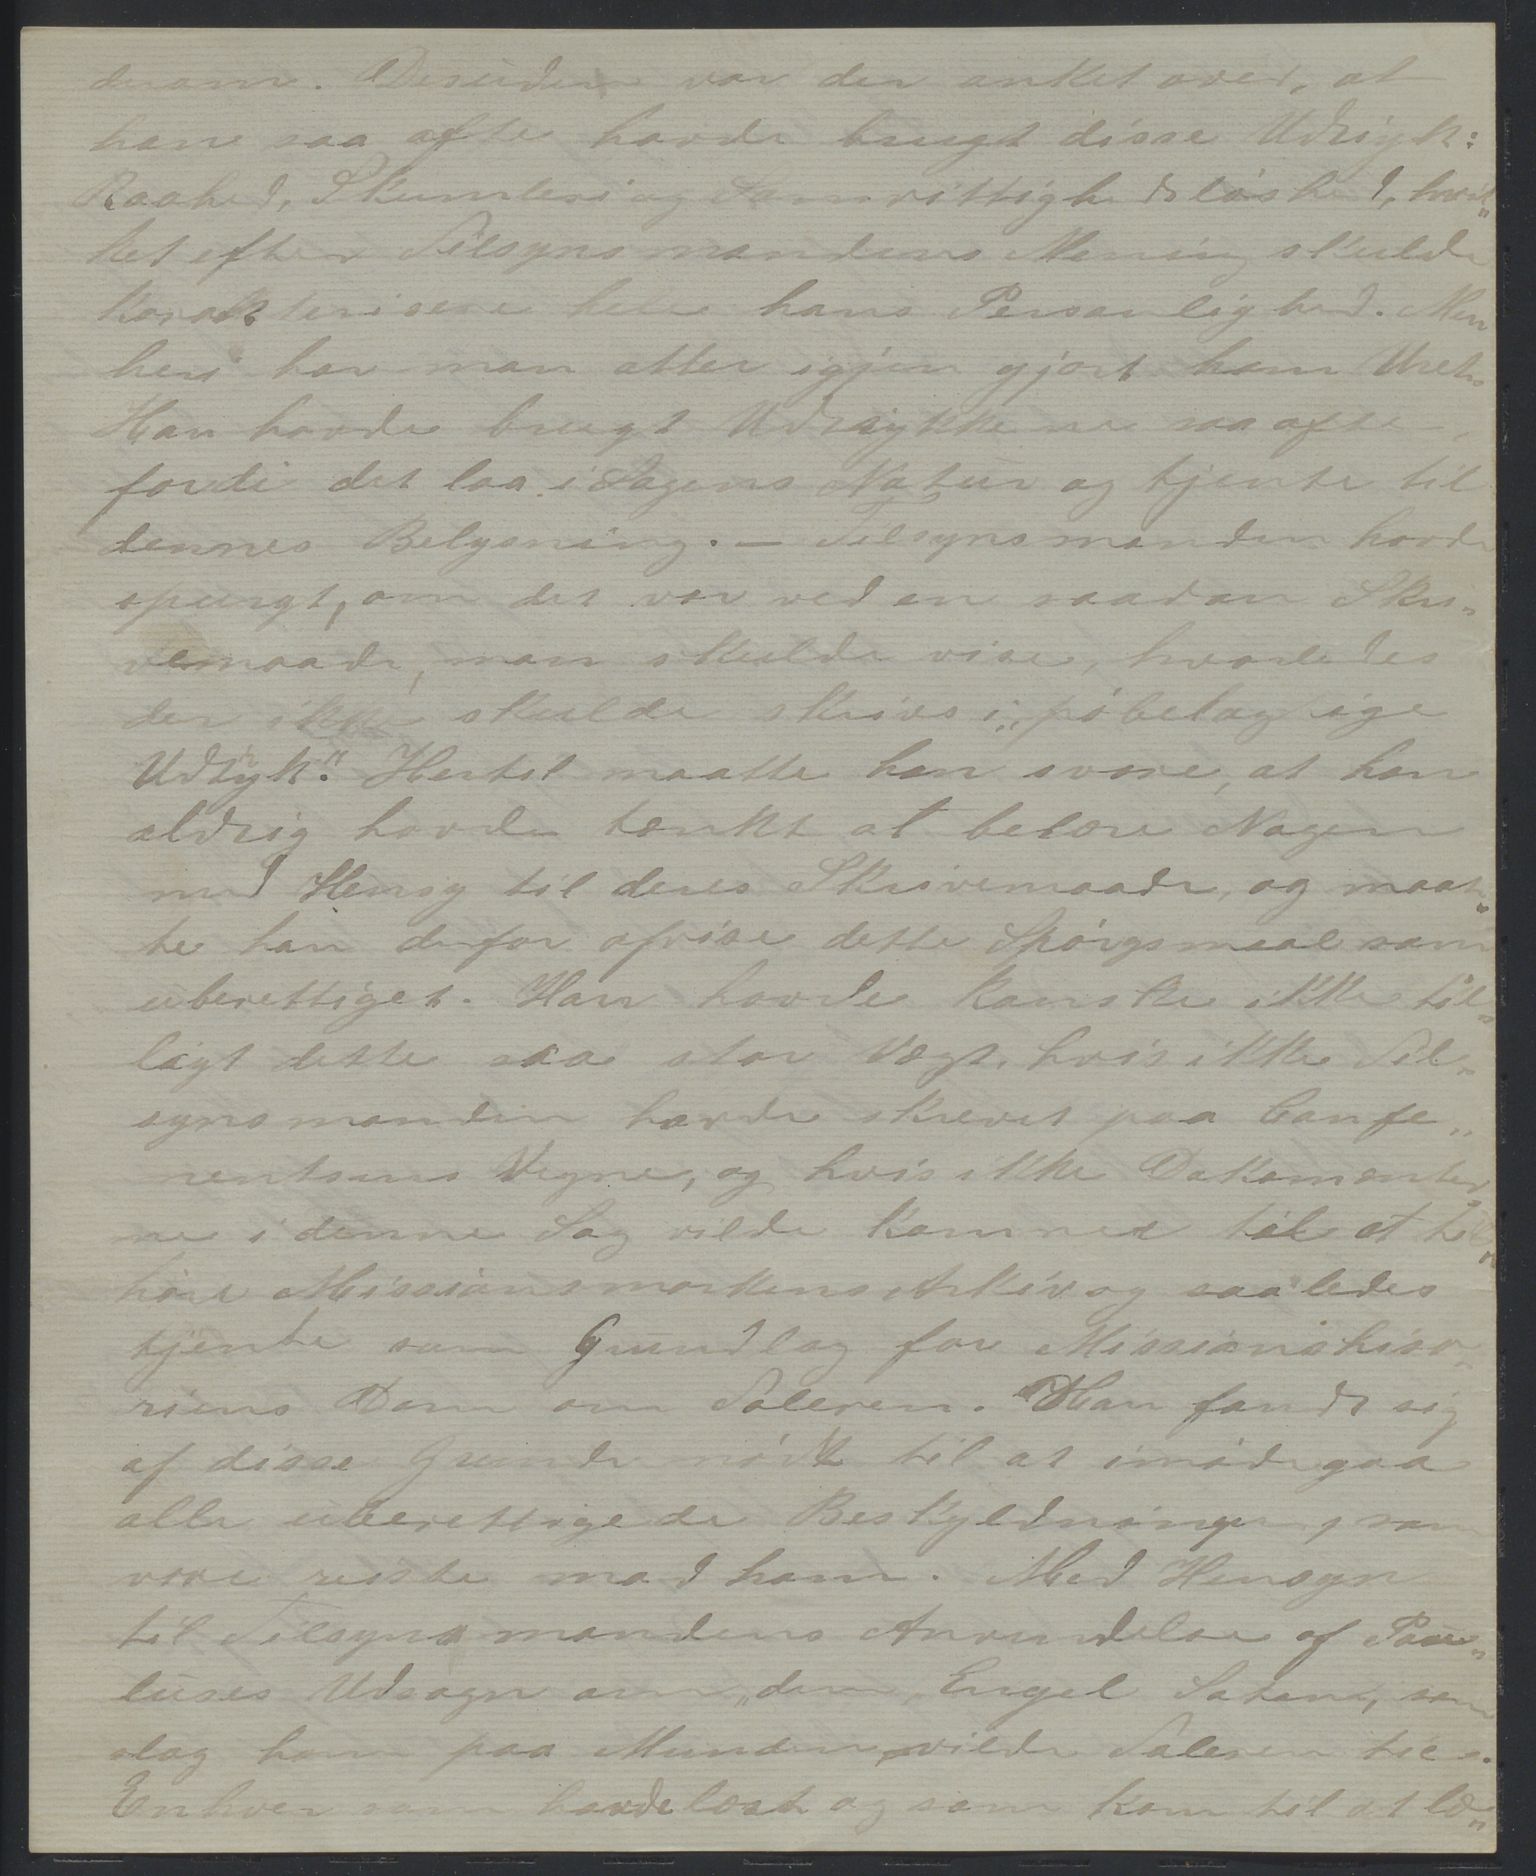 derom. Desuden var der anket over, at
han saa ofte havde brugt disse Udtryk:
Raahed, Skumleri og Samvittighedsløshed, hvil„
ket efter Tilsynsmandens Mening skulde
karakterisere hele hans Personlighed. Men
heri har man atter igjen gjort ham Uret.
Han havde brugt Udtrykkene saa ofte,
fordi det laa i Sagens Natur og tjente til
dennes Belysning. — Tilsynsmanden havde
spurgt, om det var ved en saadan Skri„
vemaade, man skulde vise, hvorledes
der ikke skulde skrives i „pöbelagtige
Udtryk". Hertil maatte han svare, at han
aldrig havde tænkt at belære Nogen
med Hensyn til deres Skrivemaade, og maat„
te han derfor afvise dette Spörgsmaal som
uberettiget. Han havde kanske ikke til„
lagt dette saa stor Vægt, hvis ikke Til„
synsmanden havde skrevet paa Confe„
rentsens Vegne, og hvis ikke Dokumenter„
ne i denne Sag vilde komme til at til„
høre Missionsmarkens Arkiv og saaledes
tjente som Grundlag for Missionshisto„
riens Dom om Taleren. Han fandt sig
af disse Grunde nödt til at imödegaa
alle uberettigede Beskyldninger, som
vare reiste mod ham. Med Hensyn
til Tilsynsmandens Anvendelse af Pau„
luses Udsagn om „den Engel Satans, som
slog ham paa Munden, vilde Taleren til„
Enhver som havde læst og som kom til at læ„